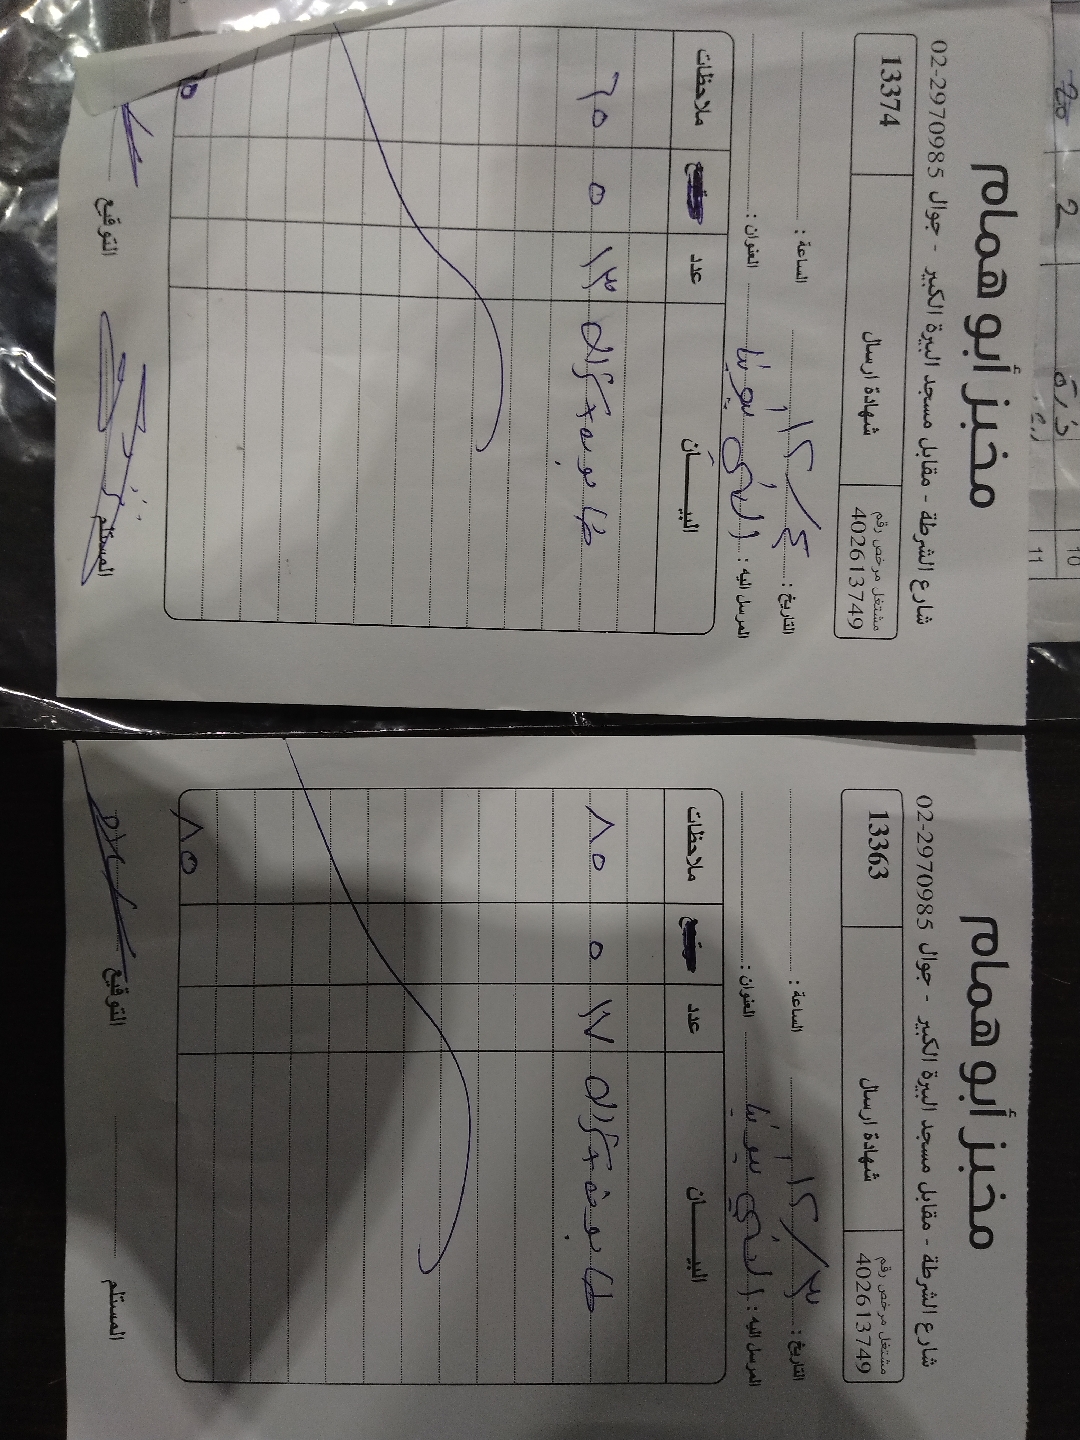 مخبز أبو همام
شارع الشرطة - مقابل مسجد البيرة الكبير - جوال 02-2970985
مشتغل مرخص رقم
402613749
شهادة ارسال
13374
التاريخ : ٤ / ١٢
الساعة :
المرسل اليه :
العنوان :
البيـــان عدد ملاحظات
١٣ ٥ ٦٥
المستلم
التوقيع
مخبز أبو همام
شارع الشرطة - مقابل مسجد البيرة الكبير - جوال 02-2970985
مشتغل مرخص رقم
402613749
شهادة ارسال
13363
التاريخ : ٣ / ١٢
الساعة :
المرسل اليه :
العنوان :
البيـــان عدد ملاحظات
١٧ ٥ ٨٥
٨٥
المستلم
التوقيع
2
10
11